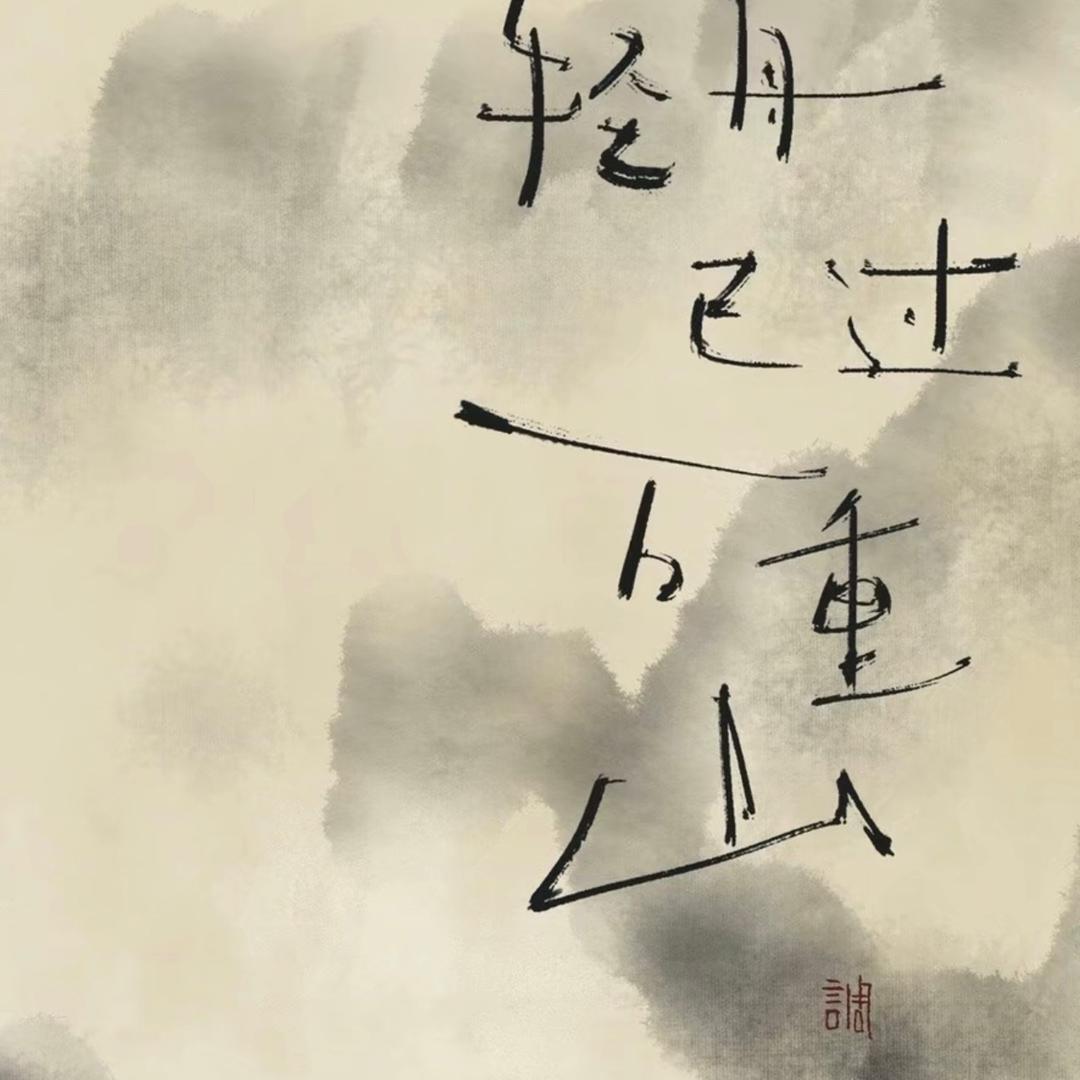 轻舟
已过
万重
山
調